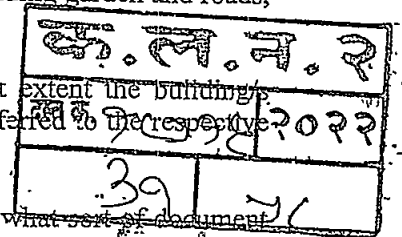 garden and roads,
क . ल . न . २
t extent the building/s
२०२२
ferred to the respective
३१ ५८
what sort of document